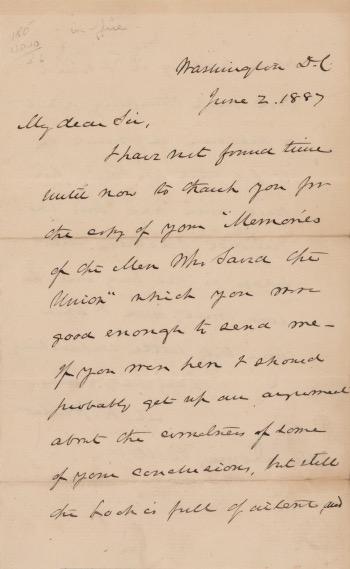 in-file
Washington D.C.
June 2. 1887
My dear Sir,
I have not found time
until now to thank you for
the copy of your "Memories
of the Men Who Saved the
Union" which you were
good enough to send me –
If you were here I should
probably get up an argument
about the correctness of some
of your conclusions, but still
the book is full of interest and